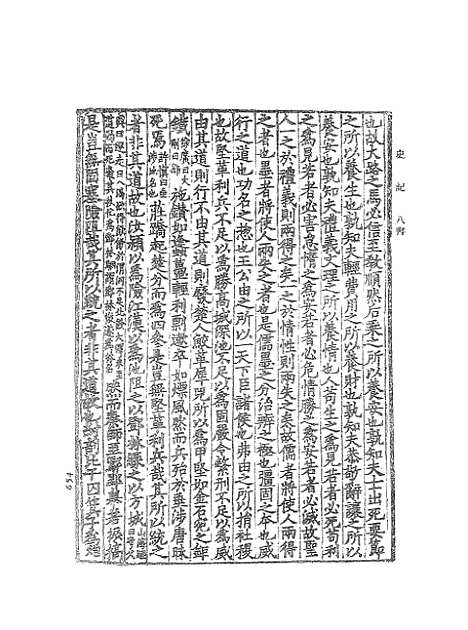 史記 八書
也故大路之馬必信至教順然后乘之所以養安也孰知夫士出死要節
之所以養生也孰知夫輕費用之所以養財也孰知夫恭敬辭讓之所以
養安也孰知夫禮義文理之所以養情也人苟生之為見若者必死苟利
之為見若者必害怠惰之為安若者必危情勝之為安若者必滅故聖
人一之於禮義則兩得之矣一之於情性則兩失之矣故儒者將使人兩得
之者也墨者將使人兩失之者也是儒墨之分治辨之極也彊固之本也威
行之道也功名之總也王公由之所以一天下臣諸侯也弗由之所以捐社稷
也故堅革利兵不足以為勝高城深池不足以為固嚴令繁刑不足以為威
由其道則行不由其道則廢楚人鮫革犀兕所以為甲堅如金石宛之鉅
鐵施鑽如蜂蠆輕利剽遬卒如熛風然而兵殆於垂涉唐昧
死焉莊蹻起楚分而為四參是豈無堅革利兵哉其所以統之
者非其道故也汝潁以為險江漢以為池阻之以鄧林緣之以方城
然而秦師至鄢郢舉若振槁
是豈無固塞險阻哉其所以統之者非其道故也紂剖比干囚箕子為炮
654